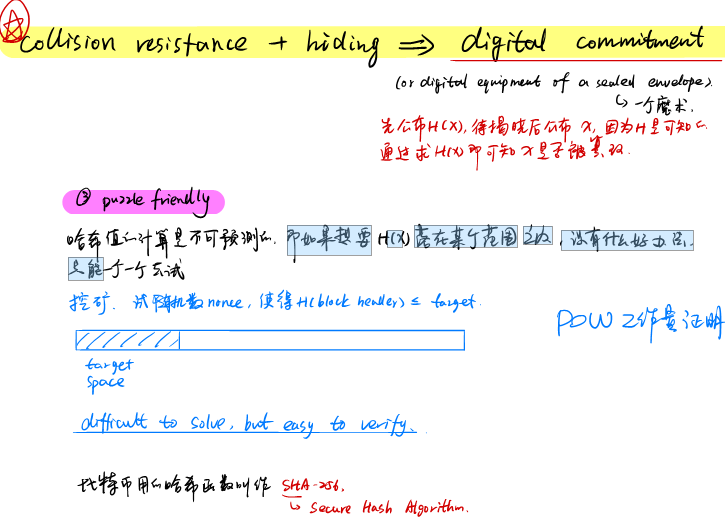 collision resistance + hiding ⇒ digital commitment
(or digital equipment of a sealed envelope).
↳ 一个魔术.
先公布H(X), 待揭晓后公布 X, 因为H是可知的
通过求H(X)即可知X是否被篡改.
③ puzzle friendly
哈希值的计算是不可预测的. 即如果想要 H(X) 落在某个范围之内, 没有什么好办法.
只能一个一个去试
挖矿. 试随机数nonce, 使得H(block header) ≤ target.
POW 工作量证明
target
space
difficult to solve, but easy to verify.
比特币用的哈希函数叫作 SHA-256.
↳ Secure Hash Algorithm.